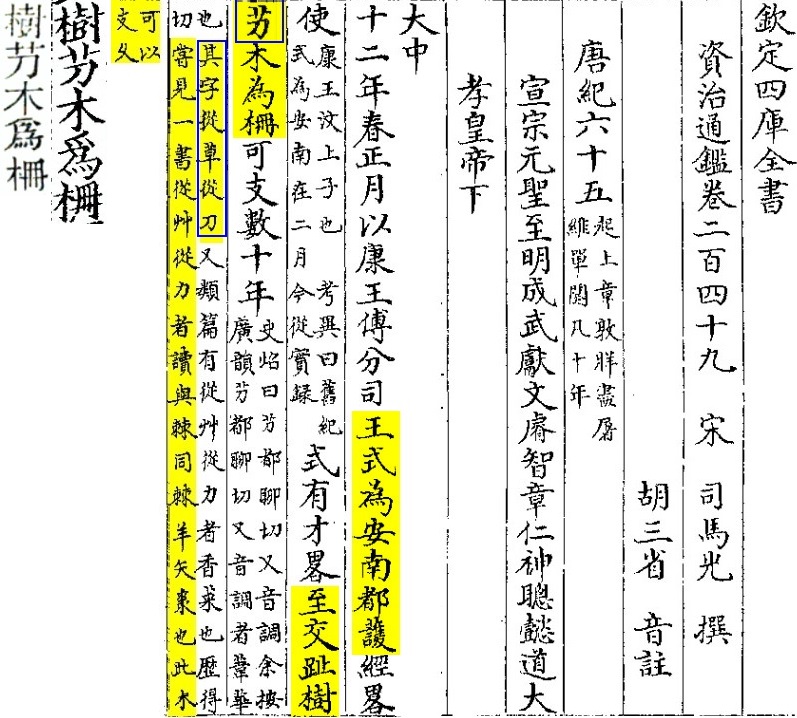 欽定四庫全書
資治通鑑卷二百四十九 宋 司馬光 撰
胡三省 音註
唐紀六十五 起上章敦牂盡屠
維單閼凡十年
宣宗元聖至明成武獻文睿智章仁神聰懿道大
孝皇帝下
大中
十二年春正月以康王傅分司王式為安南都護經畧
使
康王汶上子也 考異曰舊紀
式為安南在二月今從實録
式有才畧至交趾樹
芀木為柵可支數十年
史炤曰芀都聊切又音調余按
廣韻芀都聊切又音調者葦華
也其字從草從刀又類篇有從艸從力者香菜也歷得
切嘗見一書從艸從力者讀與棘同棘羊矢棗也此木
可以
支久
樹芀木爲柵
樹芀木爲柵